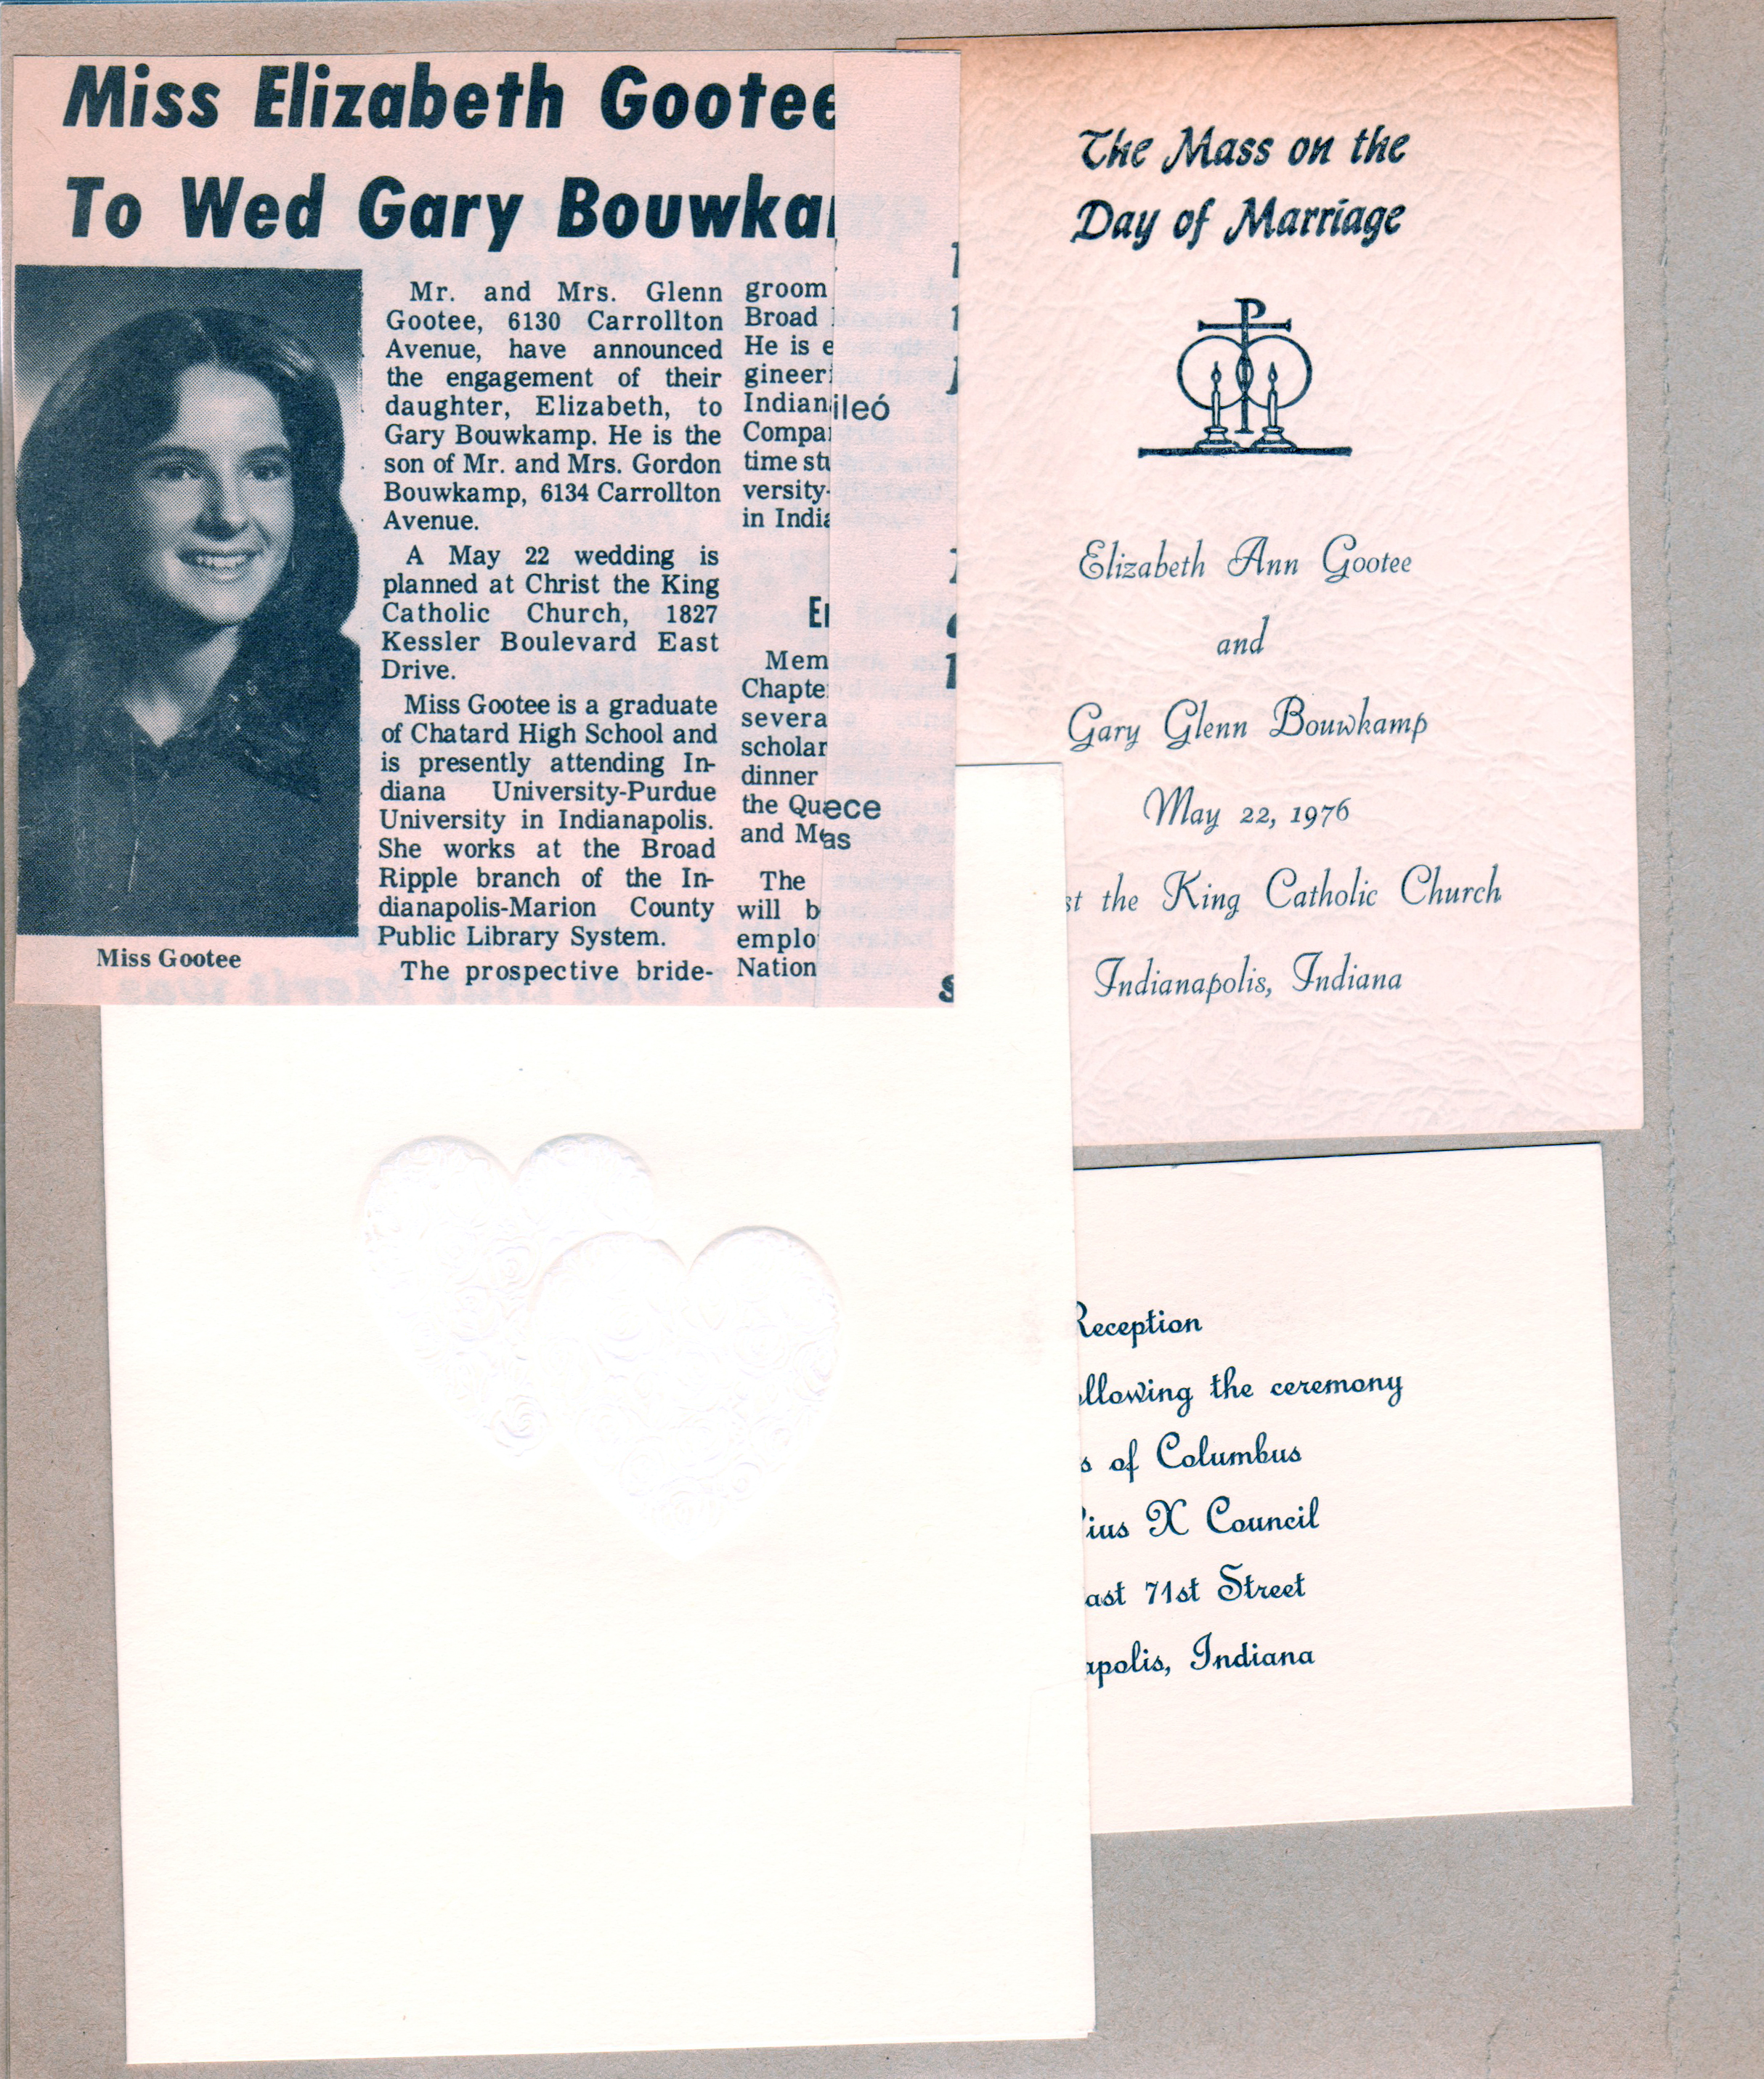 Miss Elizabeth Gootee
To Wed Gary Bouwka
Mr. and Mrs. Glenn
Gootee, 6130 Carrollton
Avenue, have announced
the engagement of their
daughter, Elizabeth, to
Gary Bouwkamp. He is the
son of Mr. and Mrs. Gordon
Bouwkamp, 6134 Carrollton
Avenue.
A May 22 wedding is
planned at Christ the King
Catholic Church, 1827
Kessler Boulevard East
Drive.
Miss Gootee is a graduate
of Chatard High School and
is presently attending In-
diana University-Purdue
University in Indianapolis.
She works at the Broad
Ripple branch of the In-
dianapolis-Marion County
Public Library System.
The prospective bride-
Miss Gootee
groom
Broad
He is e
gineeri
Indian
ileó
Compa
time stu
versity-
in India
Mem
Chapte
severa
scholar
dinner
the Qu
ece
and M
as
The
will b
emplo
Nation
The Mass on the
Day of Marriage
Elizabeth Ann Gootee
and
Gary Glenn Bouwkamp
May 22, 1976
st the King Catholic Church
Indianapolis, Indiana
Reception
ollowing the ceremony
s of Columbus
ius X Council
ast 71st Street
apolis, Indiana